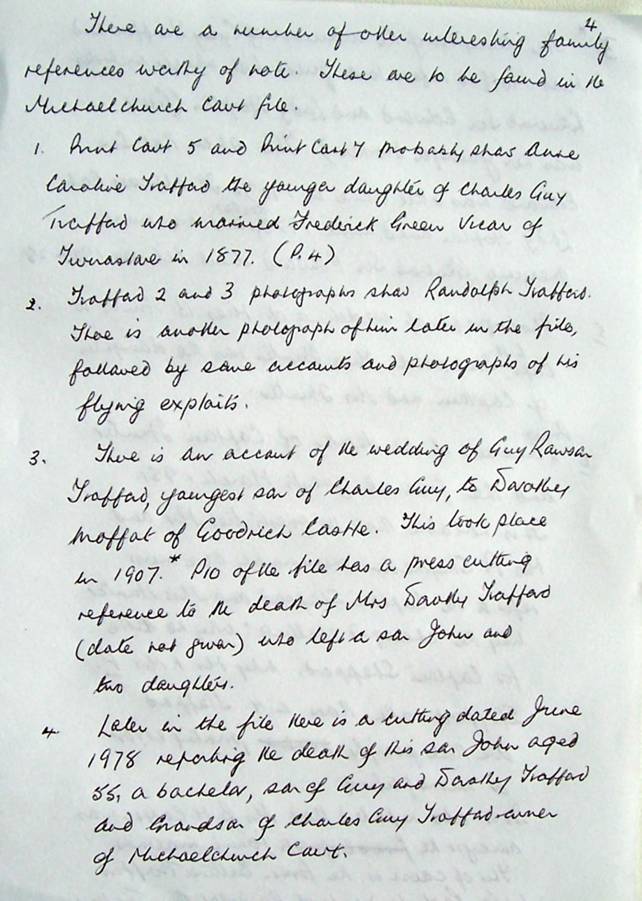 4
There are a number of other interesting family
references worthy of note. These are to be found in the
Michaelchurch Court file.
1. Print Court 5 and Print Court 7 probably show Anne
Caroline Trafford the younger daughter of Charles Guy
Trafford who married Frederick Green Vicar of
in 1877. (P.4)
2. Trafford 2 and 3 photographs show Randolph Trafford.
There is another photograph of him later in the files,
followed by some accounts and photographs of his
flying exploits.
3. There is an account of the wedding of Guy Rawson
Trafford, youngest son of Charles Guy, to Dorothy
Moffat of Goodrich Castle. This took place
in 1907.* P10 of the file has a press cutting
reference to the death of Mrs Dorothy Trafford
(date not given) who left a son John and
two daughters.
4 Later in the file there is a cutting dated June
1978 reporting the death of this son John aged
55, a bachelor, son of Guy and Dorothy Trafford
and Grandson of Charles Guy Trafford-owner
of Michaelchurch Court.